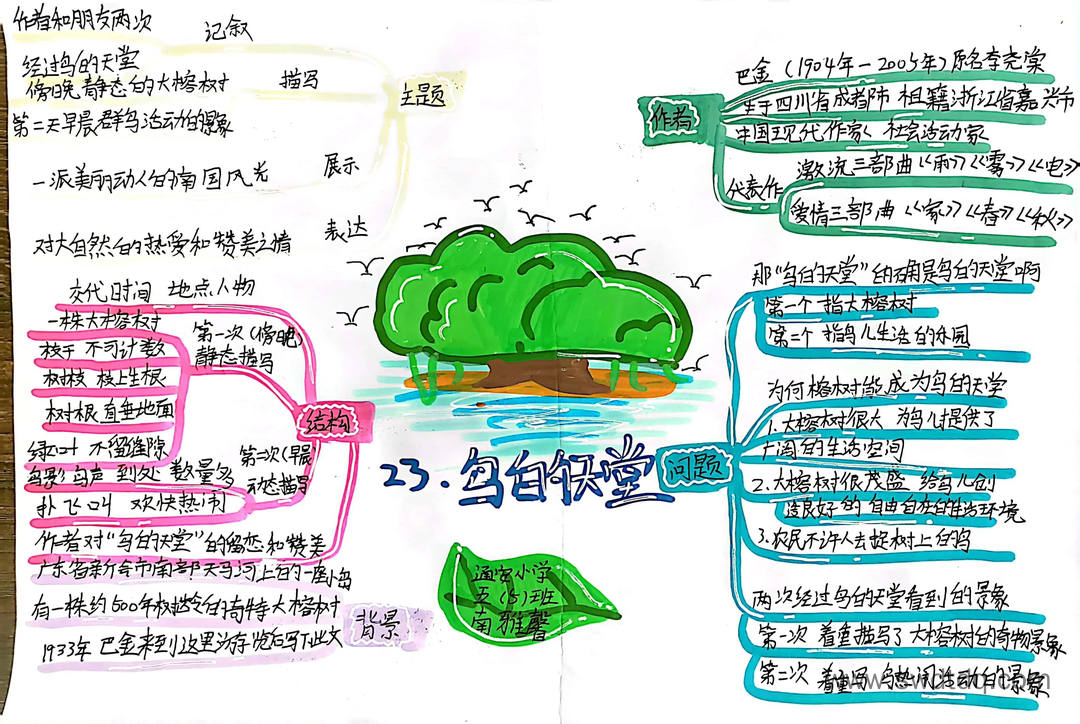 23.鸟的天堂
作者和朋友两次 记叙
经过鸟的天堂
傍晚静态的大榕树 描写
第二天早晨群鸟活动的景象
主题
一派美丽动人的南国风光 展示
对大自然的热爱和赞美之情 表达
交代时间 地点人物
一株大榕树
枝干 不可计数
树枝 枝上生根
树根 直垂地面
绿叶 不留缝隙
第一次(傍晚)
静态描写
结构
鸟影鸟声 到处 数量多
扑飞叫 欢快热闹
第二次(早晨)
动态描写
作者对“鸟的天堂”的留恋和赞美
广东省新会市南部天马河上的一座小岛
有一株约500年树龄的奇特大榕树
1933年 巴金来到这里游览后写下此文
背景
作者
巴金(1904年-2005年)原名李尧棠
生于四川省成都市 祖籍浙江省嘉兴市
中国现代作家 社会活动家
代表作
激流三部曲《雨》《雾》《电》
爱情三部曲《家》《春》《秋》
问题
那“鸟的天堂”的确是鸟的天堂啊
第一个 指大榕树
第二个 指鸟儿生活的乐园
为何榕树能成为鸟的天堂
1.大榕树很大 为鸟儿提供了
广阔的生活空间
2.大榕树很茂盛 给鸟儿创
造良好的自由自在的生活环境
3.农民不许人去捉树上的鸟
两次经过鸟的天堂看到的景象
第一次 着重描写了大榕树的奇物景象
第二次 着重写 鸟热闹活动的景象
通安小学
五(5)班
南雅馨